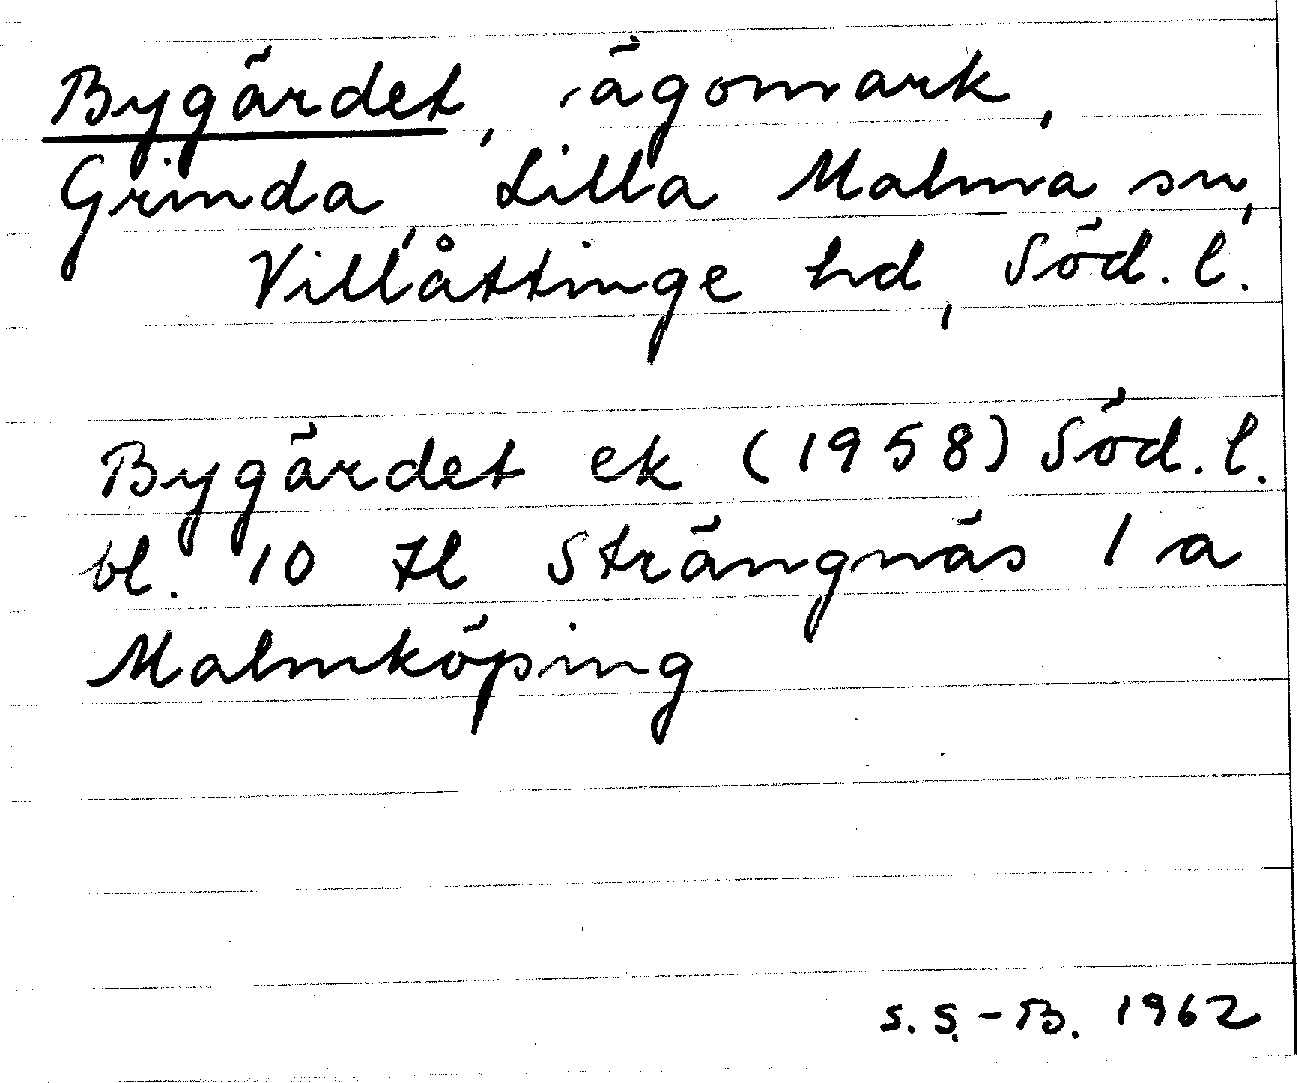 Bygärdet, ägomark,
Grinda, Lilla Malma sn,
Villåttinge hd, Söd. l.
Bygärdet ek (1958) Söd. l.
bl. 10 Il Strängnäs 1 a
Malmköping
S. S.-B. 1962